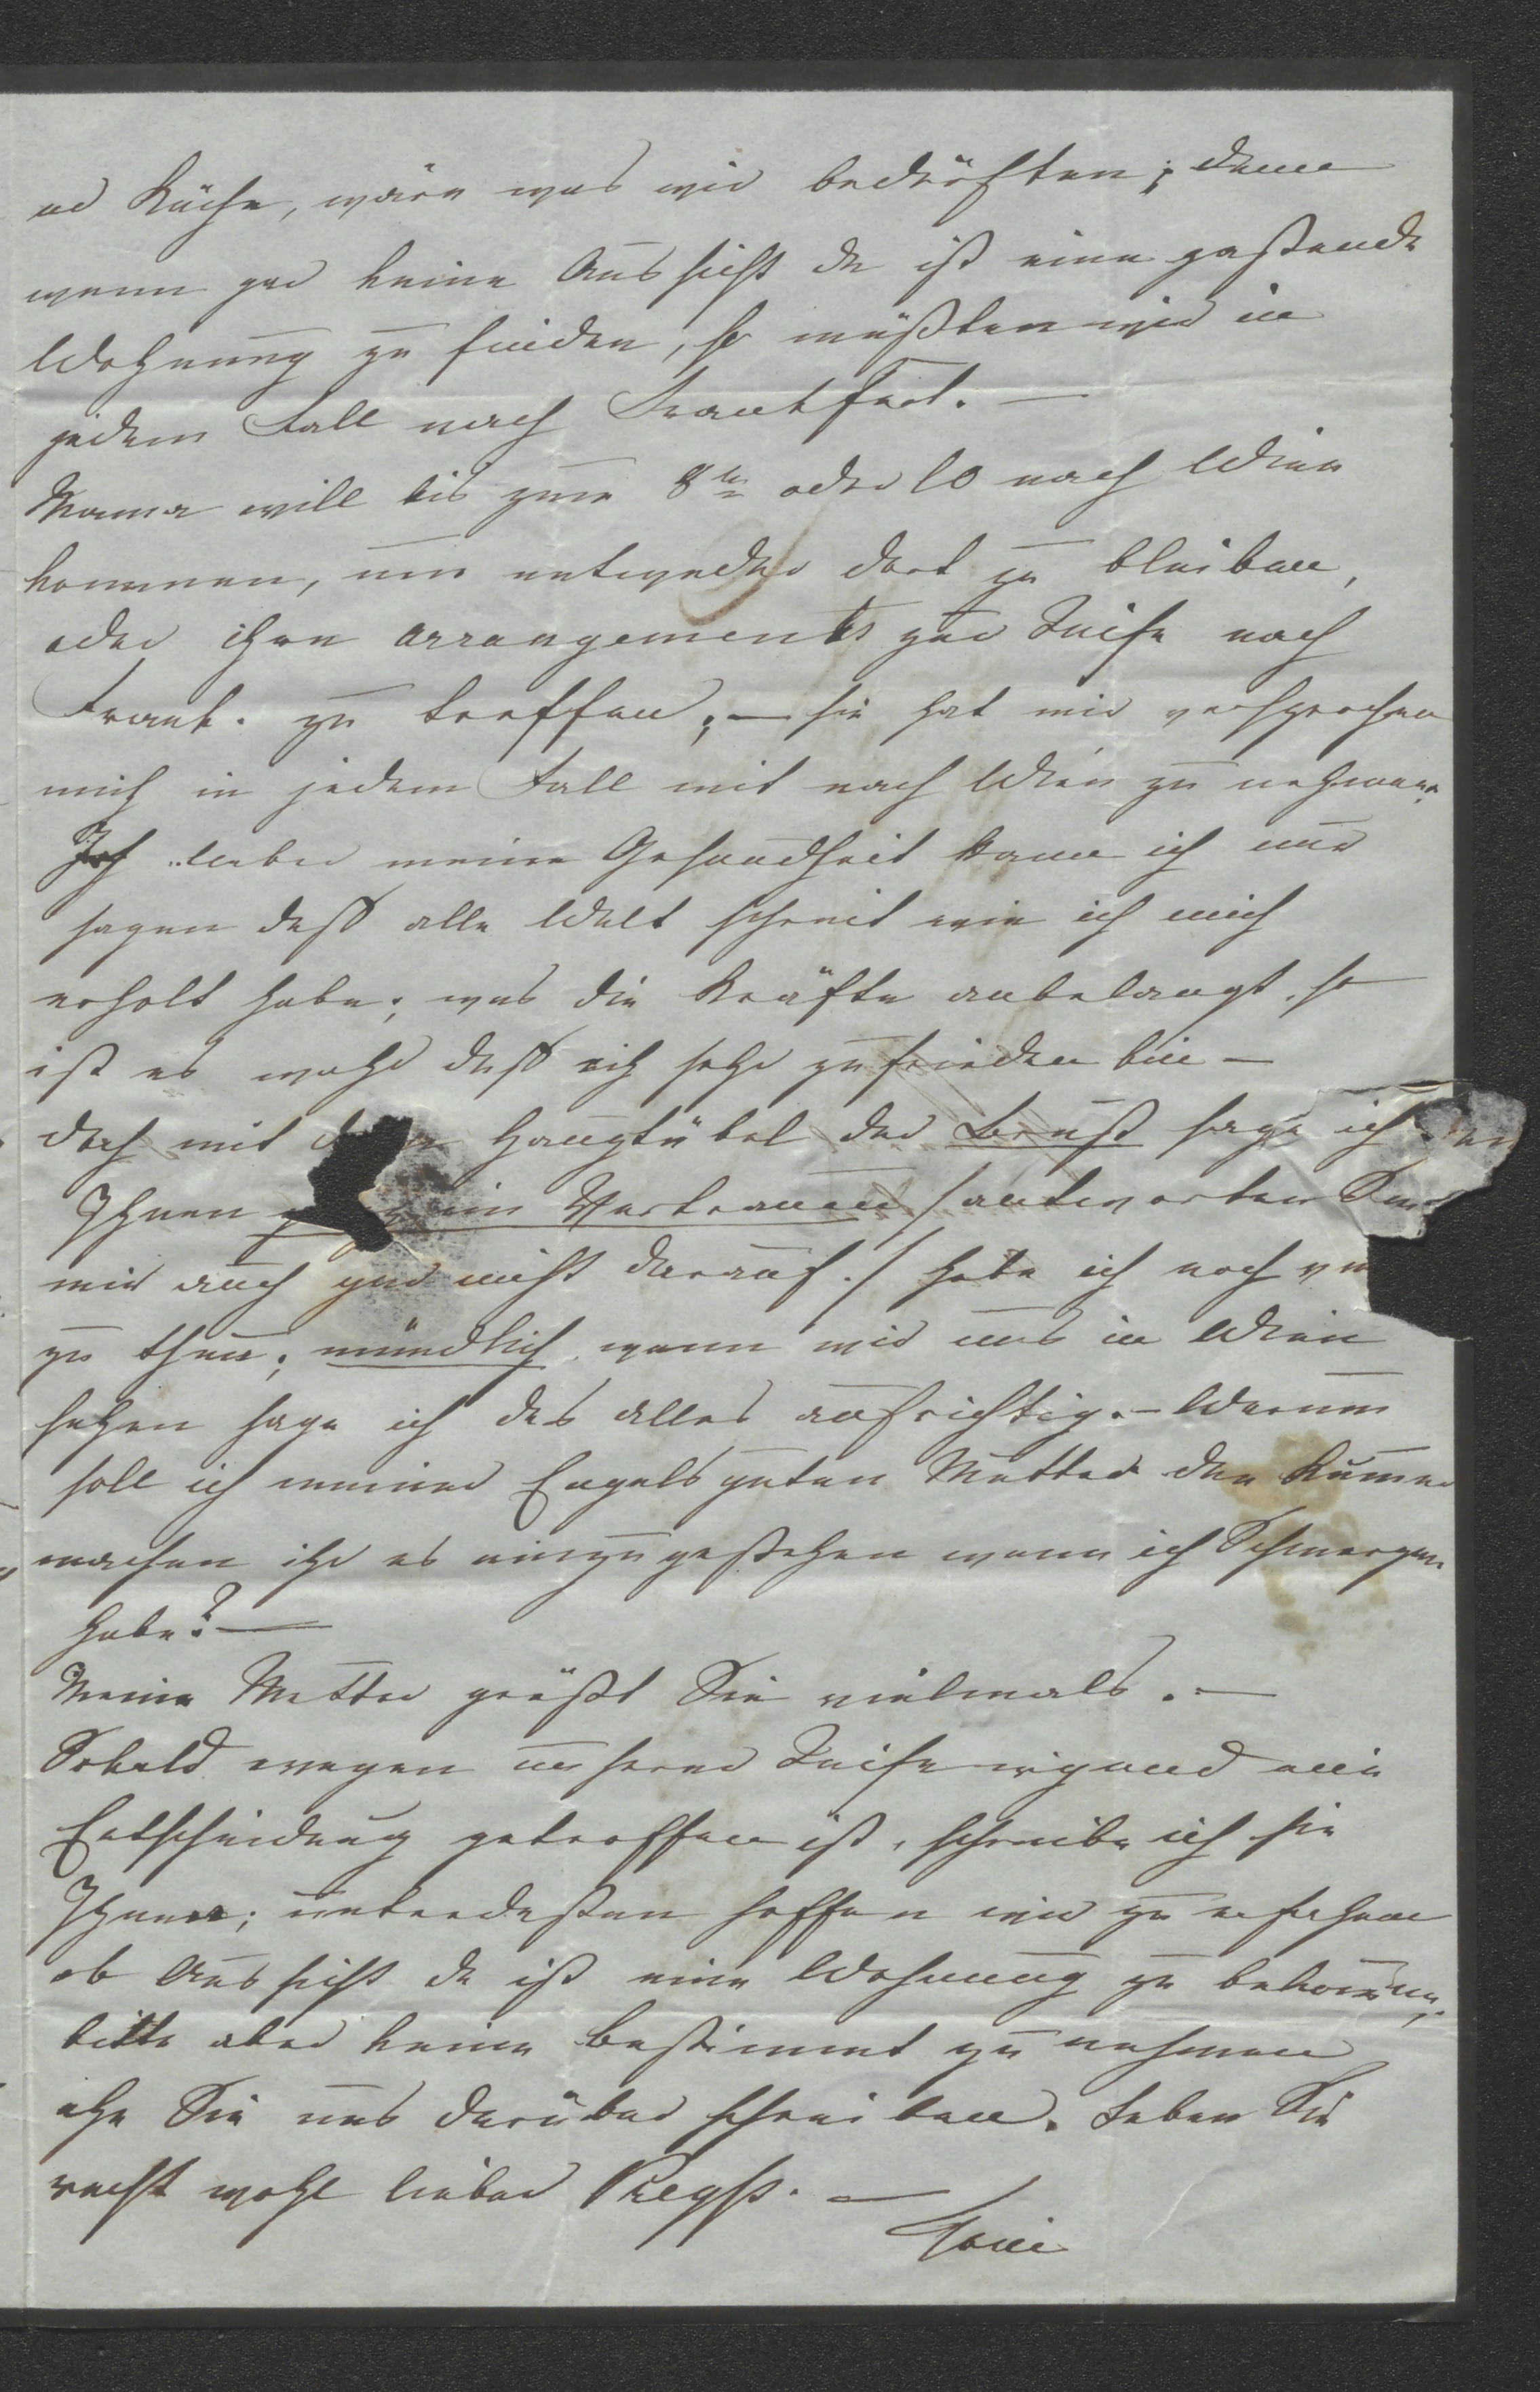 ud Küche, wäre was wir bedürften; denn
wenn gar keine Aussicht da ist eine passende
Wohnung zu finden, so müßten wir in
jedem Fall nach Frankfurt. —
Mama will bis zum 8ten oder 10 nach Wien
kommen, um entweder dort zu bleiben,
oder ihre arrangements zur Reise nach
Frank. zu treffen; — sie hat mir versprochen
mich in jedem Fall mit nach Wien zu nehmen.
Ueber meine Gesundheit kann ich nur
sagen daß alle Welt schreit wie ich mich
erholt habe; was die Kräfte anbelangt, so
ist es wahr daß ich sehr zufrieden bin —
doch mit dem Hauptübel der Brust sage ich
Ihnen im Vertrauen / antworten Sie
mir auch gar nicht darauf. / habe ich noch
zu thun; mündlich wenn wir uns in Wien
sehen sage ich das alles aufrichtig. — Warum
soll ich meiner Engels guten Mutter den Kumer
machen ihr es einzugestehen wenn ich Schmerzen
habe? —
Meine Mutter grüßt Sie vielmals. —
Sobald wegen unserer Reise irgend eine
Entscheidung getroffen ist, schreibe ich sie
Ihnen; unterdessen hoffen wir zu erfahren
ob Aussicht da ist eine Wohnung zu bekommen;
bitte aber keine bestimmt zu nehmen
ehe Sie uns darüber schreiben. Leben Sie
recht wohl lieber —
Toni